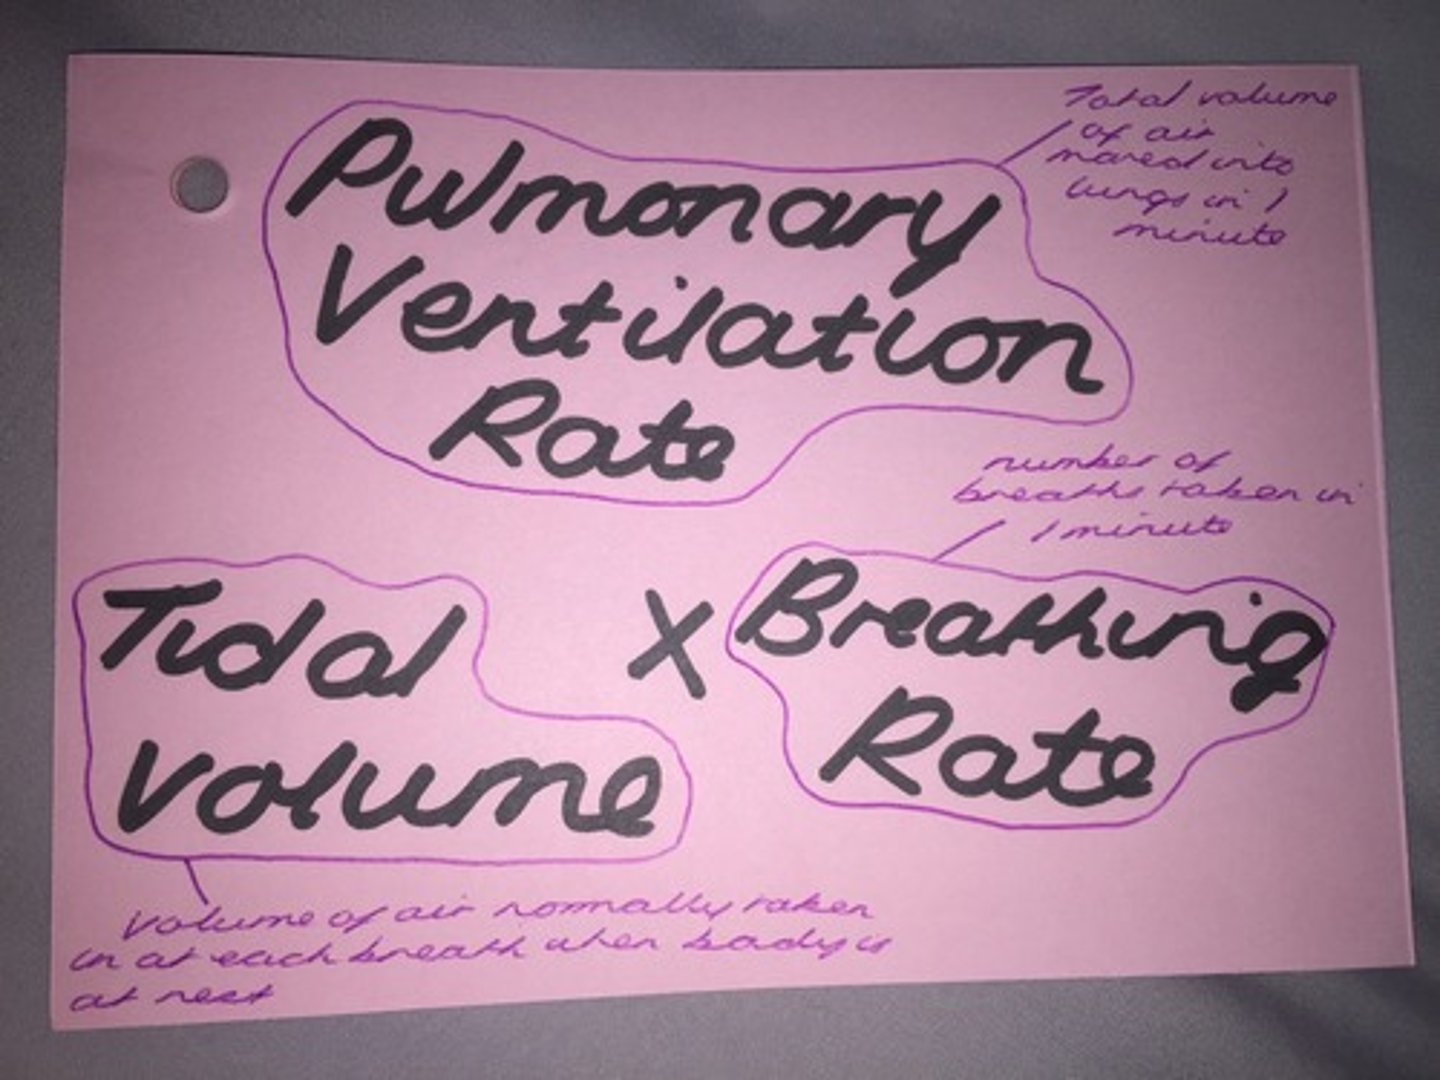 Pulmonary
Ventilation
Rate
Total volume
of air
moved into
lungs in 1
minute
number of
breaths taken in
1 minute
Tidal
volume
X
Breathing
Rate
Volume of air normally taken
in at each breath when body is
at rest